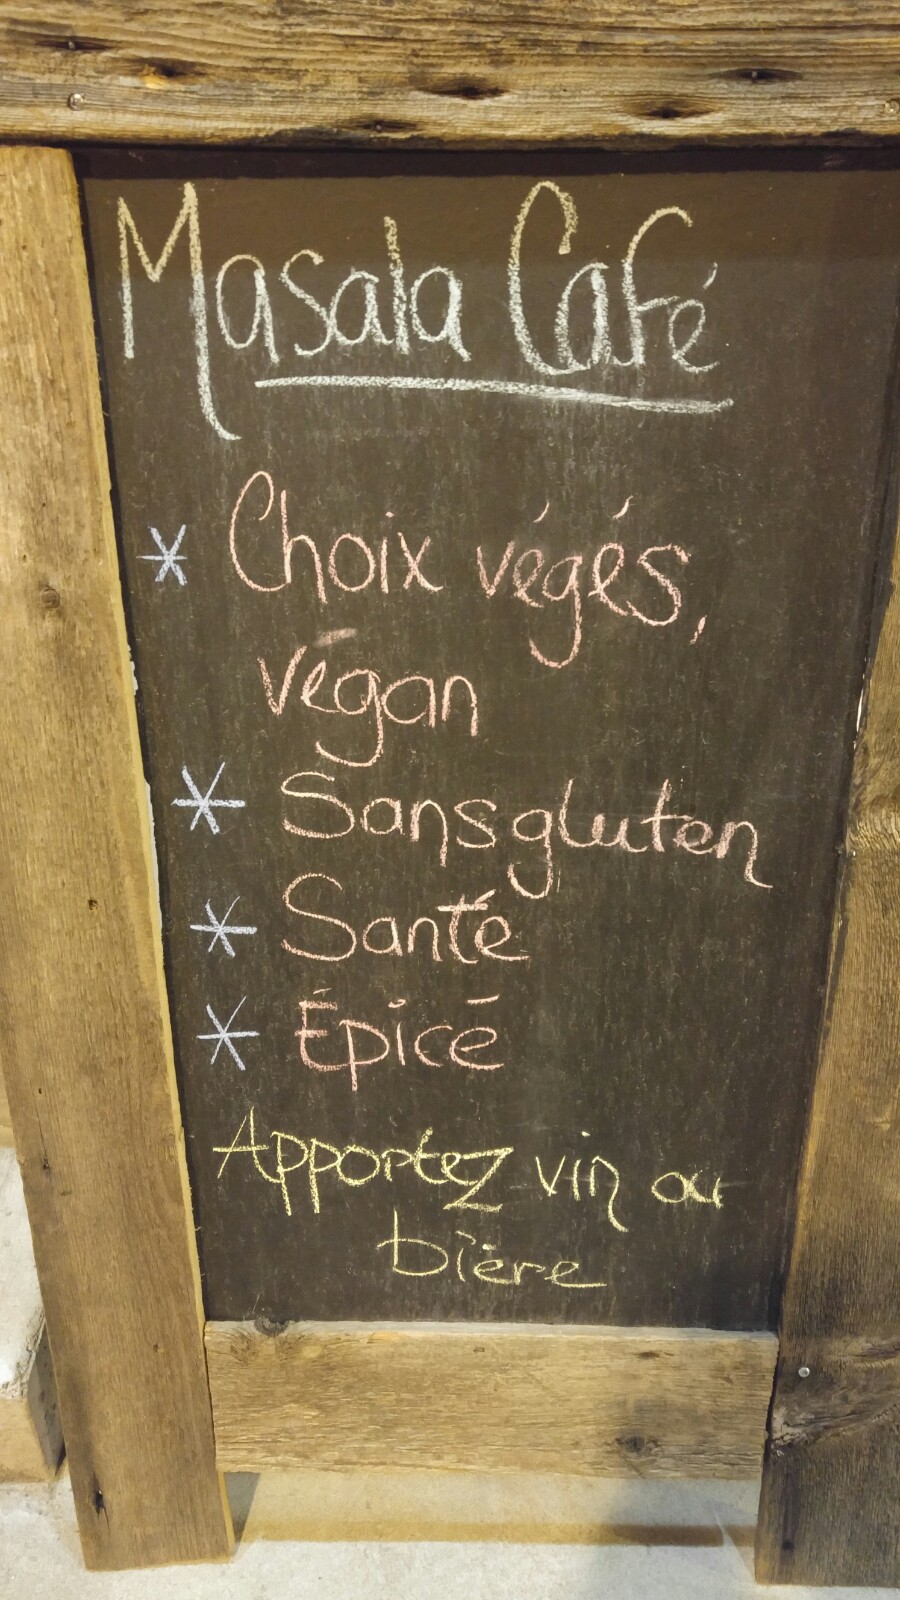 Masala Café
* Choix végés,
végan
* Sans gluten
* Santé
* Épicé
Apportez vin ou
bière